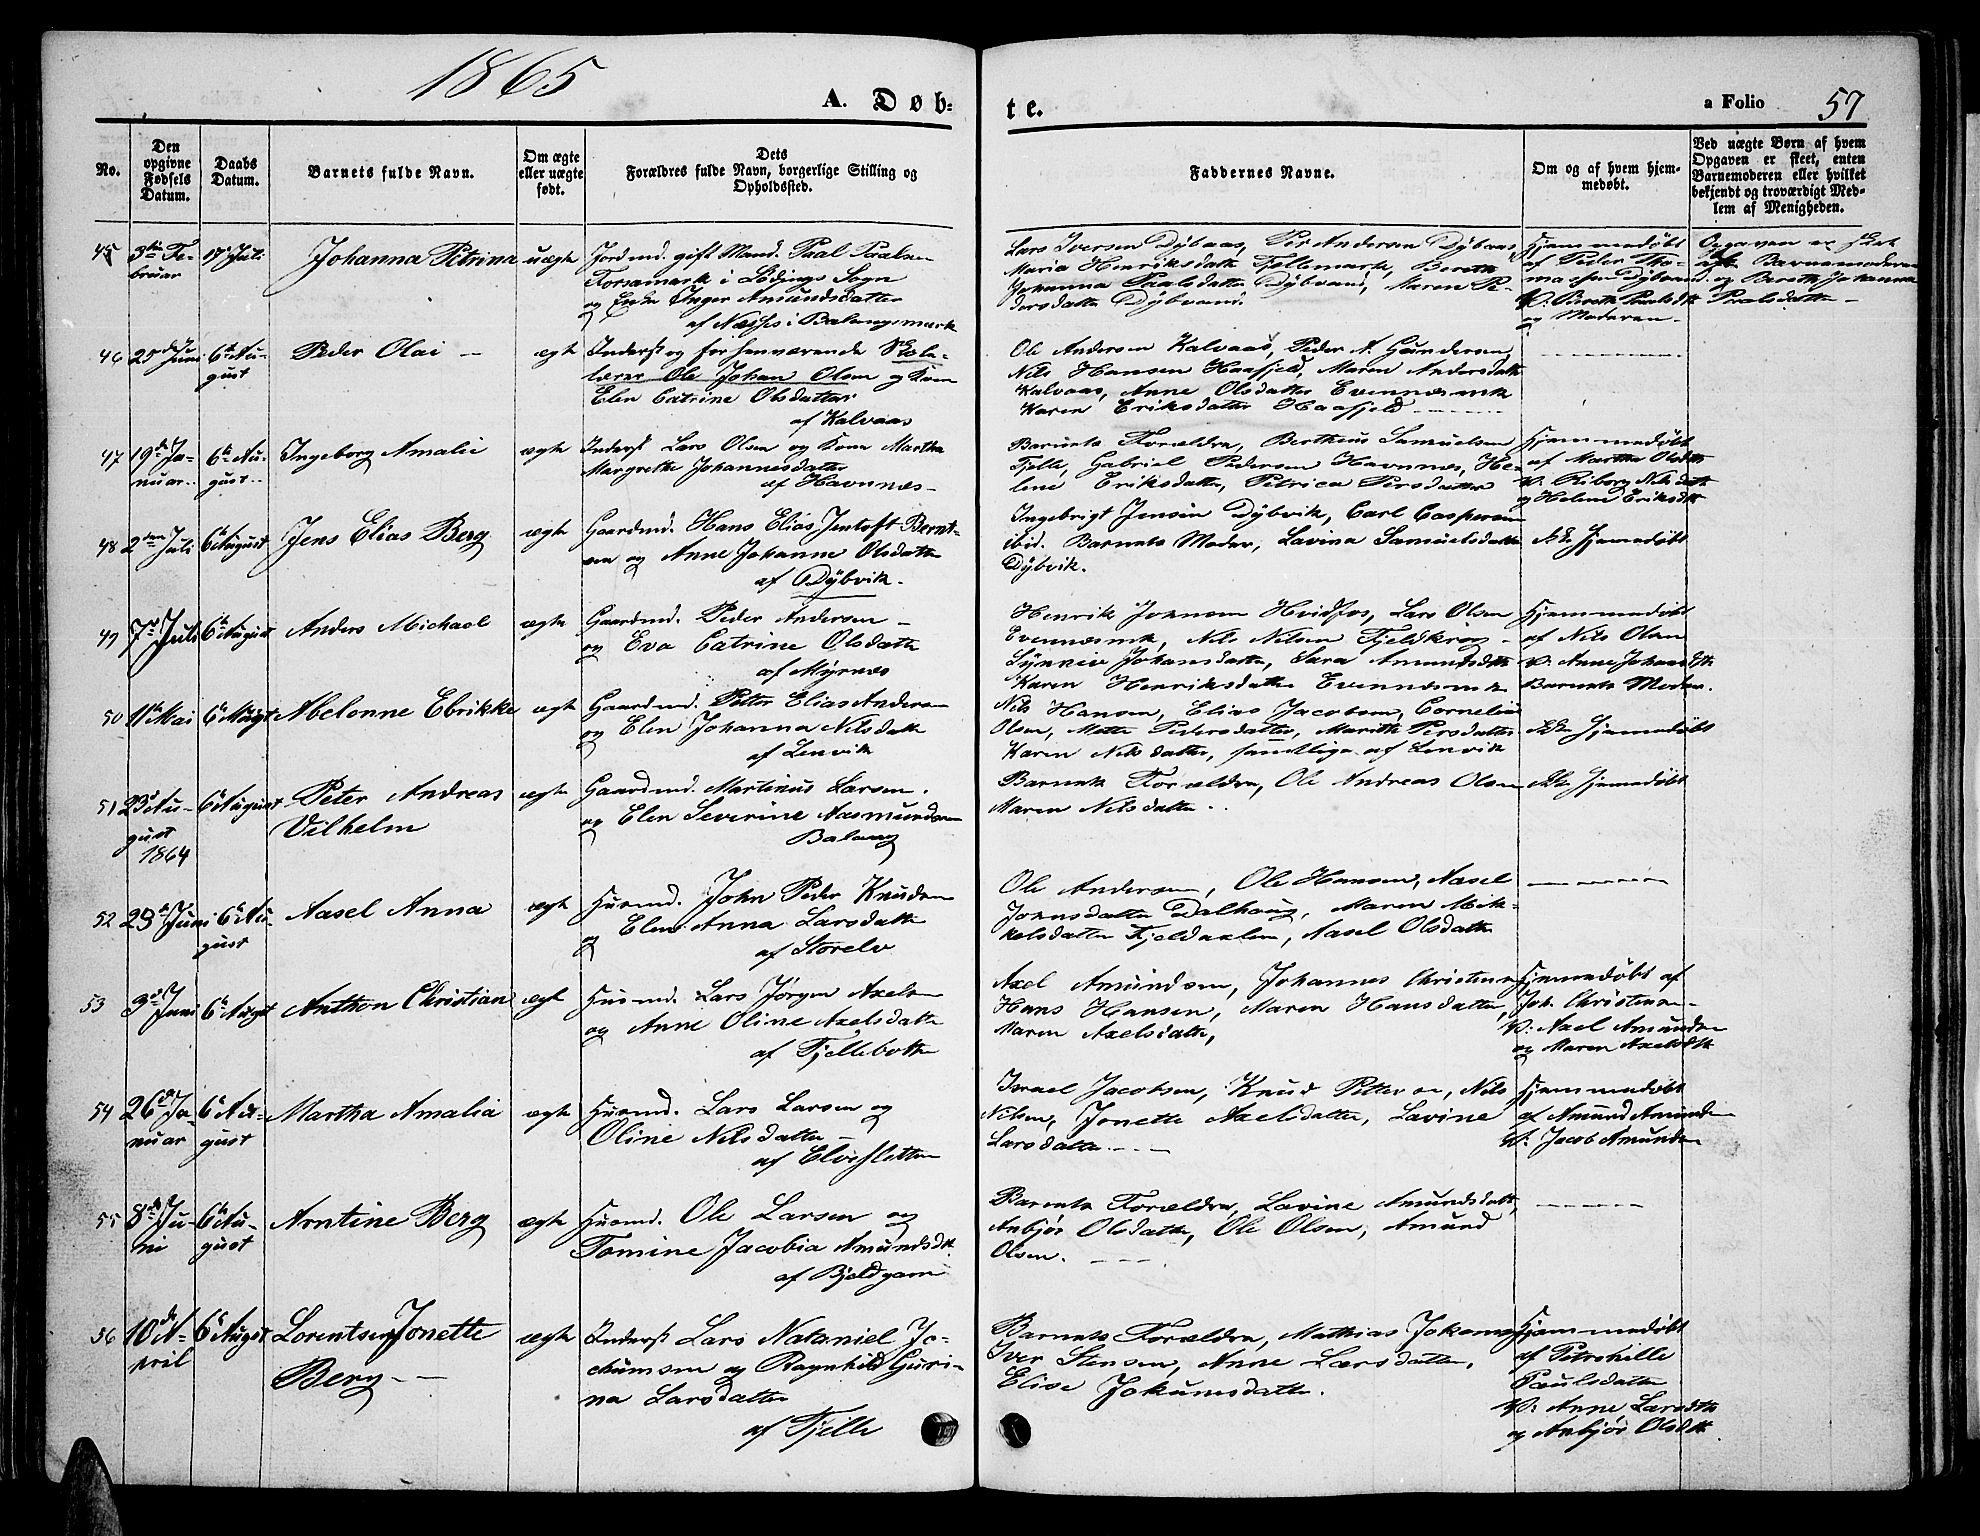 1865
A. Døb-
te.
a Folio 57
No.
Den opgivne Fødsels Datum.
Daabs Datum.
Barnets fulde Navn.
Om ægte eller uægte født.
Dets Forældres fulde Navn, borgerlige Stilling og Opholdssted.
Faddernes Navne.
Om og af hvem hjemmedøbt.
Ved uægte Børn af hvem Opgaven er skeet, enten Barnemoderen eller hvilket bekjendt og troværdigt Medlem af Menigheden.
45 3die Februar Juli Johanna Petrina uægte
Jordmd. gift Mand Paal Paalsen
Forsamark i Lødings Sogn
og Enke Inger Amundsdatter
af Næsse i Balangsmark
Lars Iversen Dybaas, Per Andersen Dybaas
Maria Henriksdatter Fjellemark, Bereth
Johanna Paalsdatter Dybvand, Maren Pe-
dersdatter Dybvand.
Hjemmedøbt
af Peder Tho-
massen Dybvand
V: Bereth Paalsdtr
og Moderen
Opgaven er skeet
af Barnemoderen
og Bereth Johanna
Paalsdatter
46 25de Juni 6te August Peder Olai ægte
Inderst og forhenværende Skole-
lærer Ole Johan Olsen og Kone
Elen Catrine Olsdatter
af Kalvaas
Ole Andersen Kalvaas, Peder A. Gundersen,
Nils Hansen Haafjeld, Maren Andersdatter
Kalvaas, Anne Olsdatter Evennæsmk
Karen Eriksdatter Haafjeld
47 19de Januar 6te August Ingeborg Amalie ægte
Inderst Lars Olsen og Kone Martha
Margrethe Johannesdatter
af Havnnæs
Barnets Forældre, Bertheus Samuelsen
Fjelle, Gabriel Pedersen Havnnæs, He-
lene Eriksdatter, Petrica Persdatter
Hjemmedøbt
af Martha Olsdtr
V: Riborg Nilsdatter
og Helene Eriksdtr
48 2den Juli 6te August Jens Elias Berg ægte
Gaardmd. Hans Elias Jentoft Bernt-
sen og Anne Johanne Olsdatter
af Dybvik
Ingebrigt Jensen Dybvik, Carl Caspersen
ibid. Barnets Moder, Lavina Samuelsdatter
Dybvik.
Ikke Hjemmedøbt
49 7de Juli 6te August Anders Michael ægte
Gaardmd. Peder Andersen
og Eva Catrine Olsdatter
af Myrnæs
Henrik Johnsen Hvidfos, Lars Olsen
Evennæsmk, Nils Nilsen Fjeldkrog
Synnive Johansdatter, Sara Amundsdtr
Karen Henriksdatter Evennæsmk
Hjemmedøbt
af Nils Olsen
V: Anne Johansdtr
Barnets Moder.
50 11te Mai 6te August Abelonne Ebrikke ægte
Gaardmd. Petter Elias Andersen
og Elen Johanna Nilsdatter
af Lenvik
Nils Hansen, Elias Jacobsen, Cornelius
Olsen, Mette Pedersdatter, Marith Persdatter
Karen Nilsdatter, samtlige af Lenvik
Ikke Hjemmedøbt
51 23de August 1864 6te August Peter Andreas Vilhelm ægte
Gaardmd. Martinus Larsen.
og Elen Severine Aasmundsen
Balang
Barnets Forældre, Ole Andreas Olsen
Maren Nilsdatter.
Ikke Hjemmedøbt
52 25de Juni 6te August Aasel Anna ægte
Husmd. John Peder Knudsen
og Elen Anna Larsdatter
af Storelv
Ole Andersen, Ole Hansen, Aasel
Johnsdatter Dalhaug, Maren Mik-
kelsdatter Fjeldaalen, Aasel Olsdatter
53 3die Juni 6te August Anthon Christian ægte
Husmd. Lars Jørgen Axelsen
og Anne Oline Axelsdatter
af Fjellebotten
Axel Amundsen, Johannes Christensen
Hans Hansen, Maren Hansdatter,
Maren Axelsdatter,
Hjemmedøbt af
Joh. Christensen
V: Axel Amundsen
og Maren Axelsdtr
54 26de Januar 6te August Martha Amalia ægte
Husmd. Lars Larsen og
Oline Nilsdatter
af Elvesletten
Israel Jacobsen, Knud Pettersen, Nils
Nilsen, Jonette Axelsdatter, Lavine
Larsdatter.
Hjemmedøbt
af Amund Amundsen
V: Jacob Amundsen
55 8de Juni 6te August Arntine Berg ægte
Husmd. Ole Larsen og
Tomine Jacobia Amundsdtr
af Bjeldgam
Barnets Forældre, Lavine Amundsdatter,
Anbjør Olsdatter, Ole Olsen, Amund
Olsen.
56 10de April 6te August Lorentse Jonette Berg ægte
Inderst Lars Nataniel Jo-
chumsen og Ragnhild Guri-
na Larsdatter
af Fjelle
Barnets Forældre, Mathias Jokums
Iver Stensen, Anne Larsdatter,
Elise Jokumsdatter.
Hjemmedøbt
af Petrohelle
Paulsdatter
V: Anne Larsdtr
og Anbjør Olsdtr